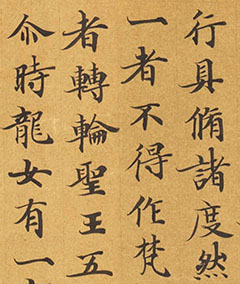 行具脩諸度然
一者不得作梵
者轉輪聖王五
尒時龍女有一